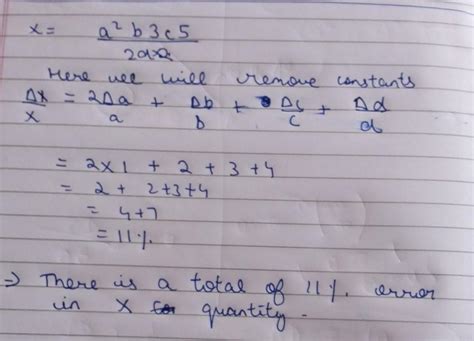 x = a² b 3c 5
2d
Here we will remove constants
Δx/x = 2Δa/a + Δb/b + Δc/c + Δd/d
= 2x1 + 2 + 3 + 4
= 2 + 2+3+4
= 4+7
= 11%
⇒ There is a total of 11% error
in X quantity.